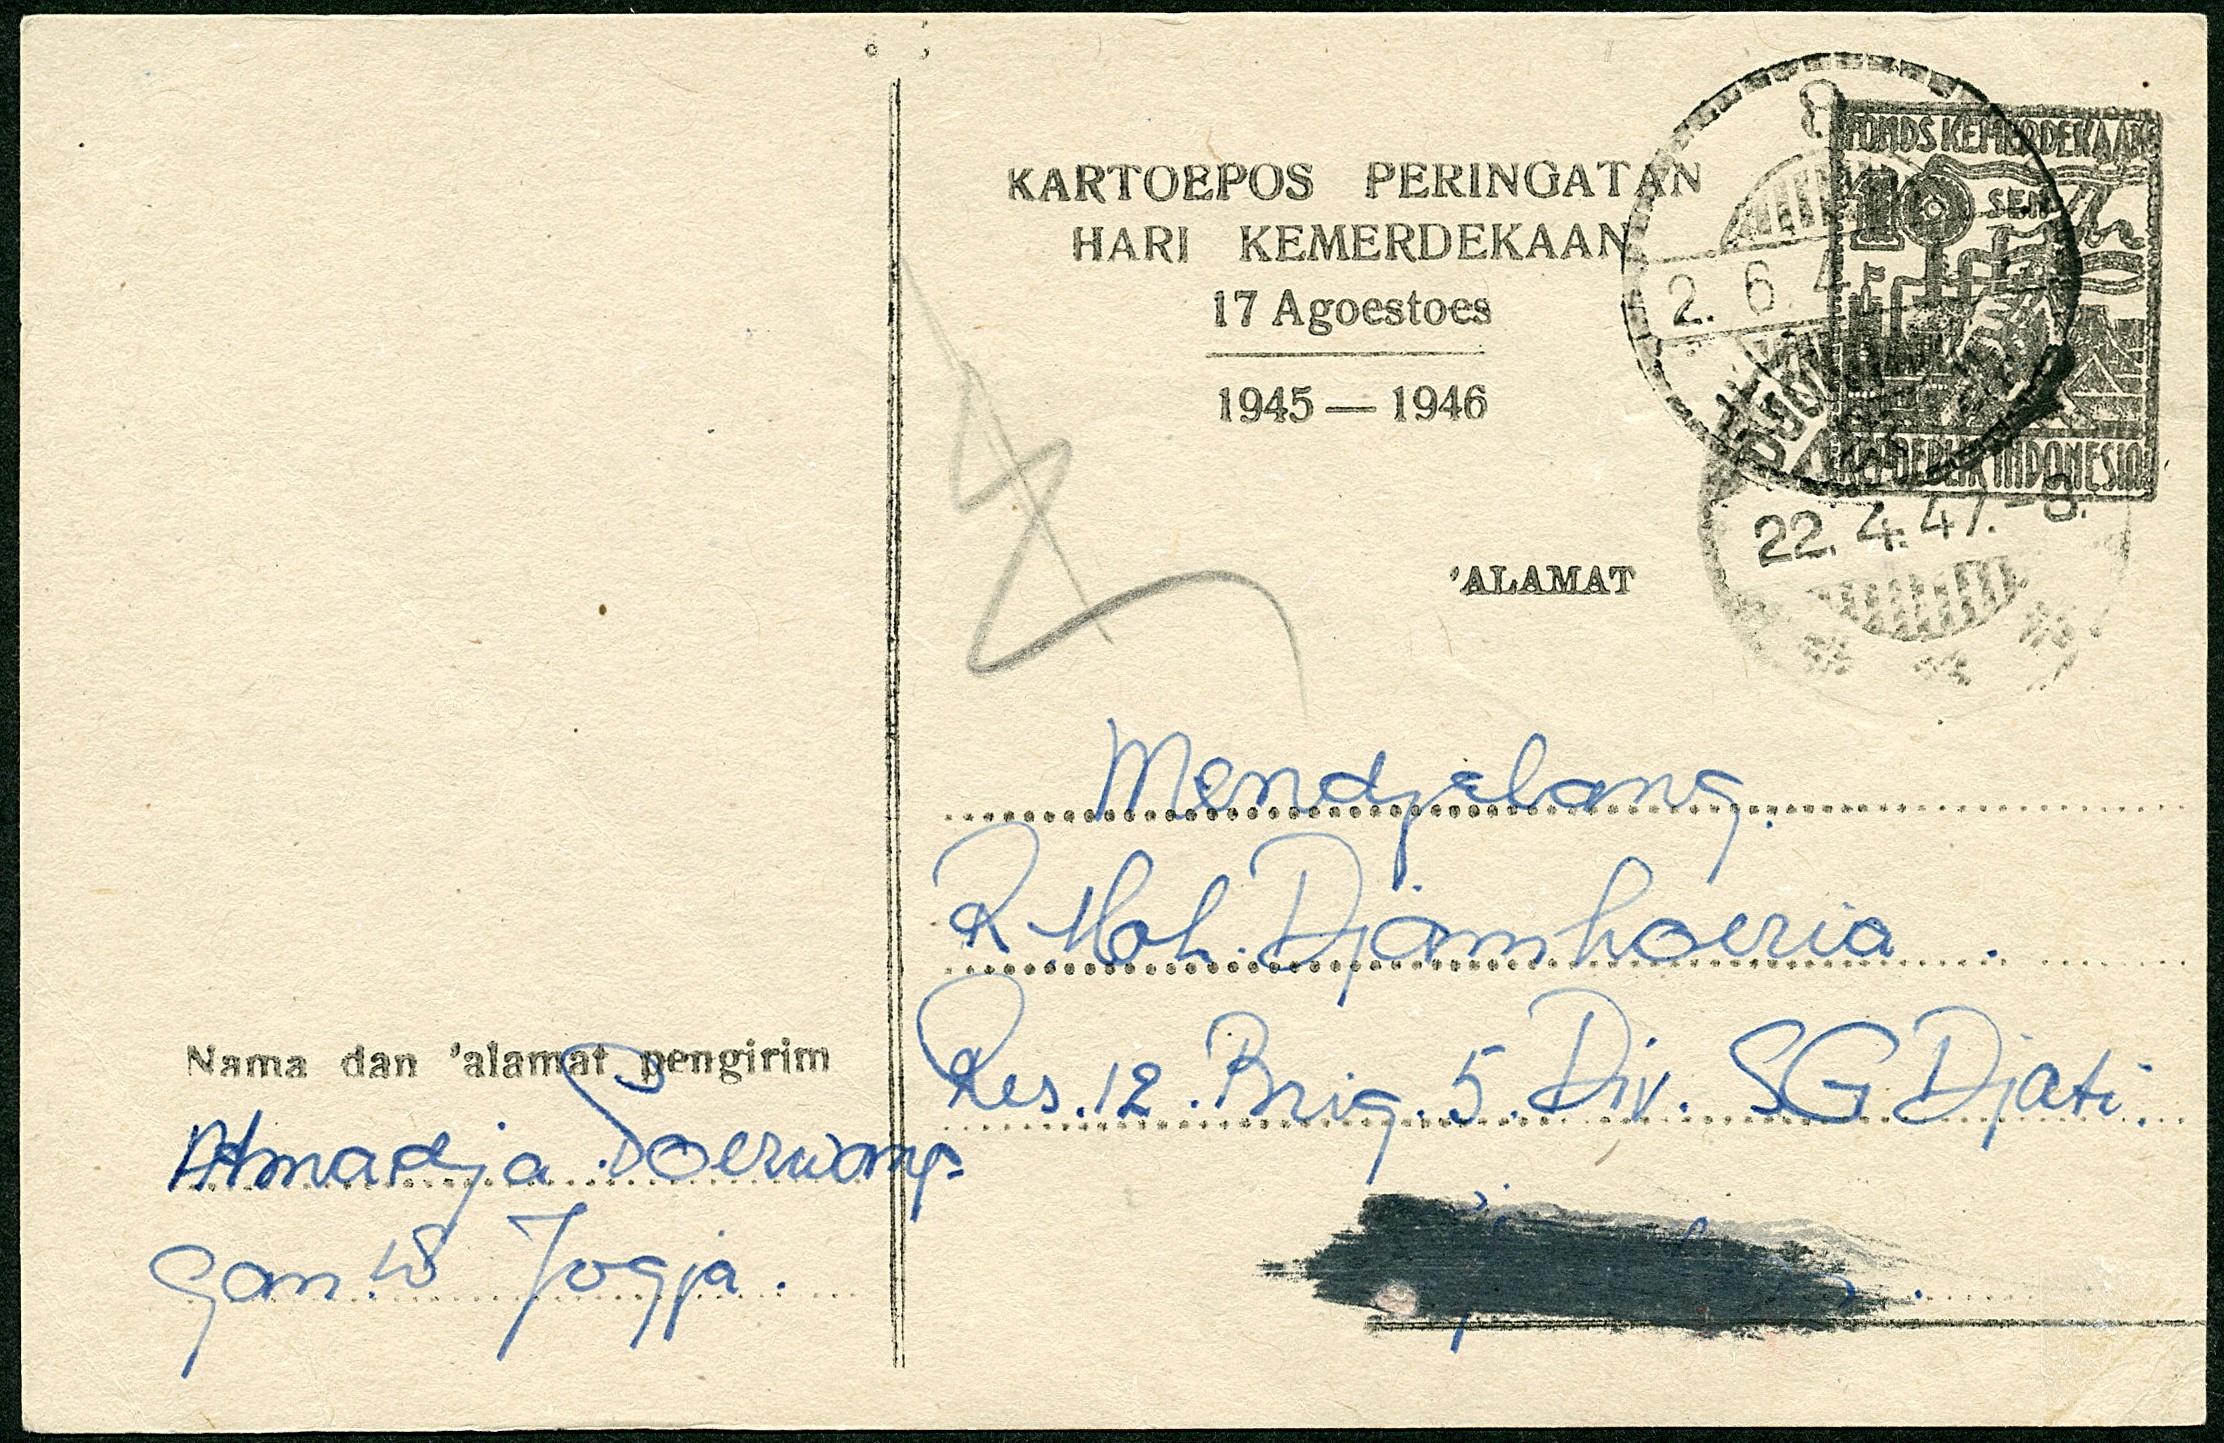 KARTOEPOS PERINGATAN
HARI KEMERDEKAAN
17 Agoestoes
1945 — 1946
FONDS KEMERDEKAAN
10 SEN
REPOEBLIK INDONESIA
8
2. 6. 4
22. 4. 47. - 8.
'ALAMAT
Mendjelang.
R. Moh. Djamhoeria.
Res. 12. Brig. 5. Div. SG Djati.
Nama dan 'alamat pengirim
Atmadja Soerwamp
Jogja.